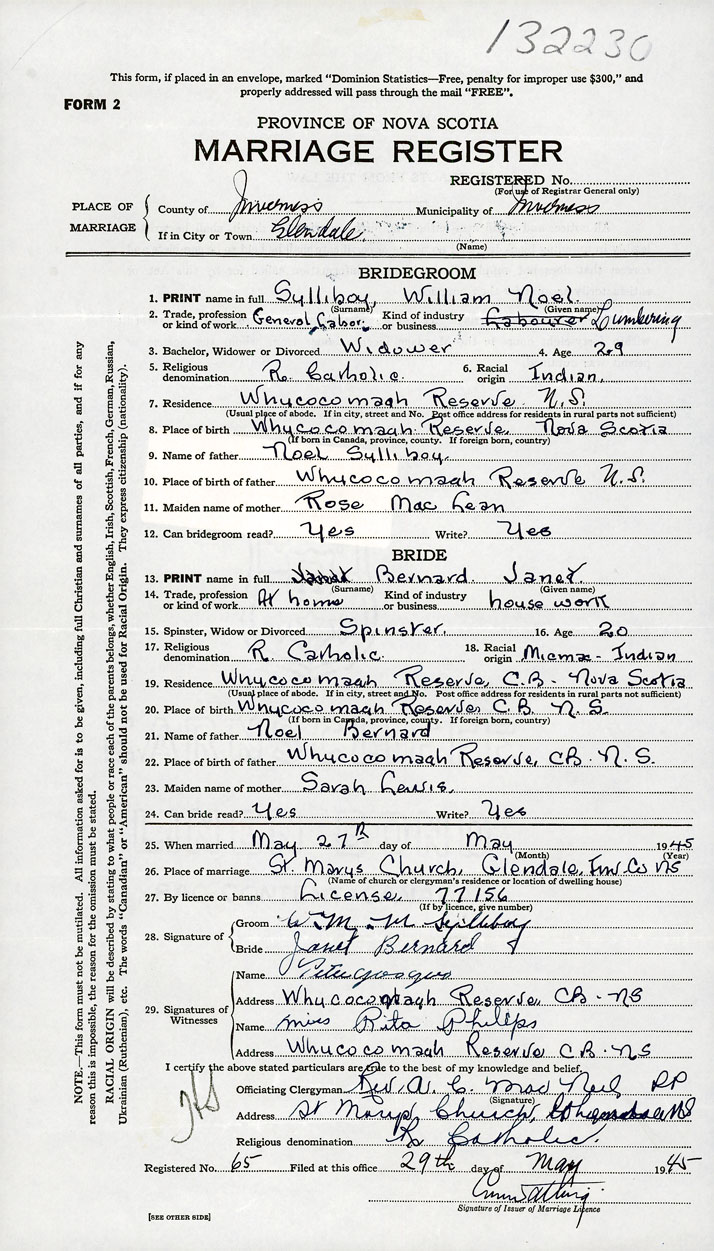 132230
This form, if placed in an envelope, marked "Dominion Statistics—Free, penalty for improper use $300," and
properly addressed will pass through the mail "FREE".
FORM 2
PROVINCE OF NOVA SCOTIA
MARRIAGE REGISTER
REGISTERED No.
(For use of Registrar General only)
PLACE OF MARRIAGE
County of Inverness Municipality of Inverness
If in City or Town Glendale.
(Name)
BRIDEGROOM
1. PRINT name in full Sylliboy, William Noel.
(Surname) (Given name)
2. Trade, profession or kind of work General Labor. Kind of industry or business Labourer Lumbering
3. Bachelor, Widower or Divorced Widower 4. Age 29
5. Religious denomination R. Catholic. 6. Racial origin Indian.
7. Residence Whycocomagh Reserve N.S.
(Usual place of abode. If in city, street and No. Post office address for residents in rural parts not sufficient)
8. Place of birth Whycocomagh Reserve, Nova Scotia
(If born in Canada, province, county. If foreign born, country)
9. Name of father Noel Sylliboy.
10. Place of birth of father Whycocomagh Reserve N.S.
11. Maiden name of mother Rose Mac Lean
12. Can bridegroom read? Yes Write? Yes
BRIDE
13. PRINT name in full Bernard. Janet.
(Surname) (Given name)
14. Trade, profession or kind of work At home Kind of industry or business house work
15. Spinster, Widow or Divorced Spinster. 16. Age 20
17. Religious denomination R. Catholic. 18. Racial origin Micmac - Indian
19. Residence Whycocomagh Reserve, C.B - Nova Scotia
(Usual place of abode. If in city, street and No. Post office address for residents in rural parts not sufficient)
20. Place of birth Whycocomagh Reserve C.B. N.S.
(If born in Canada, province, county. If foreign born, country)
21. Name of father Noel Bernard
22. Place of birth of father Whycocomagh Reserve, CB. N.S.
23. Maiden name of mother Sarah Lewis.
24. Can bride read? Yes Write? Yes
25. When married May 27th day of May 1945
(Month) (Year)
26. Place of marriage St. Marys Church, Glendale, Inv. Co NS
(Name of church or clergyman's residence or location of dwelling house)
27. By licence or banns License. 77156
(If by licence, give number)
28. Signature of
Groom W.M. Sylliboy
Bride Janet Bernard
29. Signatures of Witnesses
Name Peter Googoo
Address Whycocomagh Reserve, CB - NS
Name Miss Rita Philips
Address Whycocomagh Reserve C B - NS
I certify the above stated particulars are true to the best of my knowledge and belief.
Officiating Clergyman Rev. A. C. Mac Neil PP
(Signature)
Address St Marys Church, NS
Religious denomination R Catholic.
Registered No. 65 Filed at this office 29th day of May 1945
Signature of Issuer of Marriage Licence
[SEE OTHER SIDE]
NOTE.—This form must not be mutilated. All information asked for is to be given, including full Christian and surnames of all parties, and if for any
reason this is impossible, the reason for the omission must be stated.
RACIAL ORIGIN will be described by stating to what people or race each of the parents belongs, whether English, Irish, Scottish, French, German, Russian,
Ukrainian (Ruthenian), etc. The words "Canadian" or "American" should not be used for Racial Origin. They express citizenship (nationality).